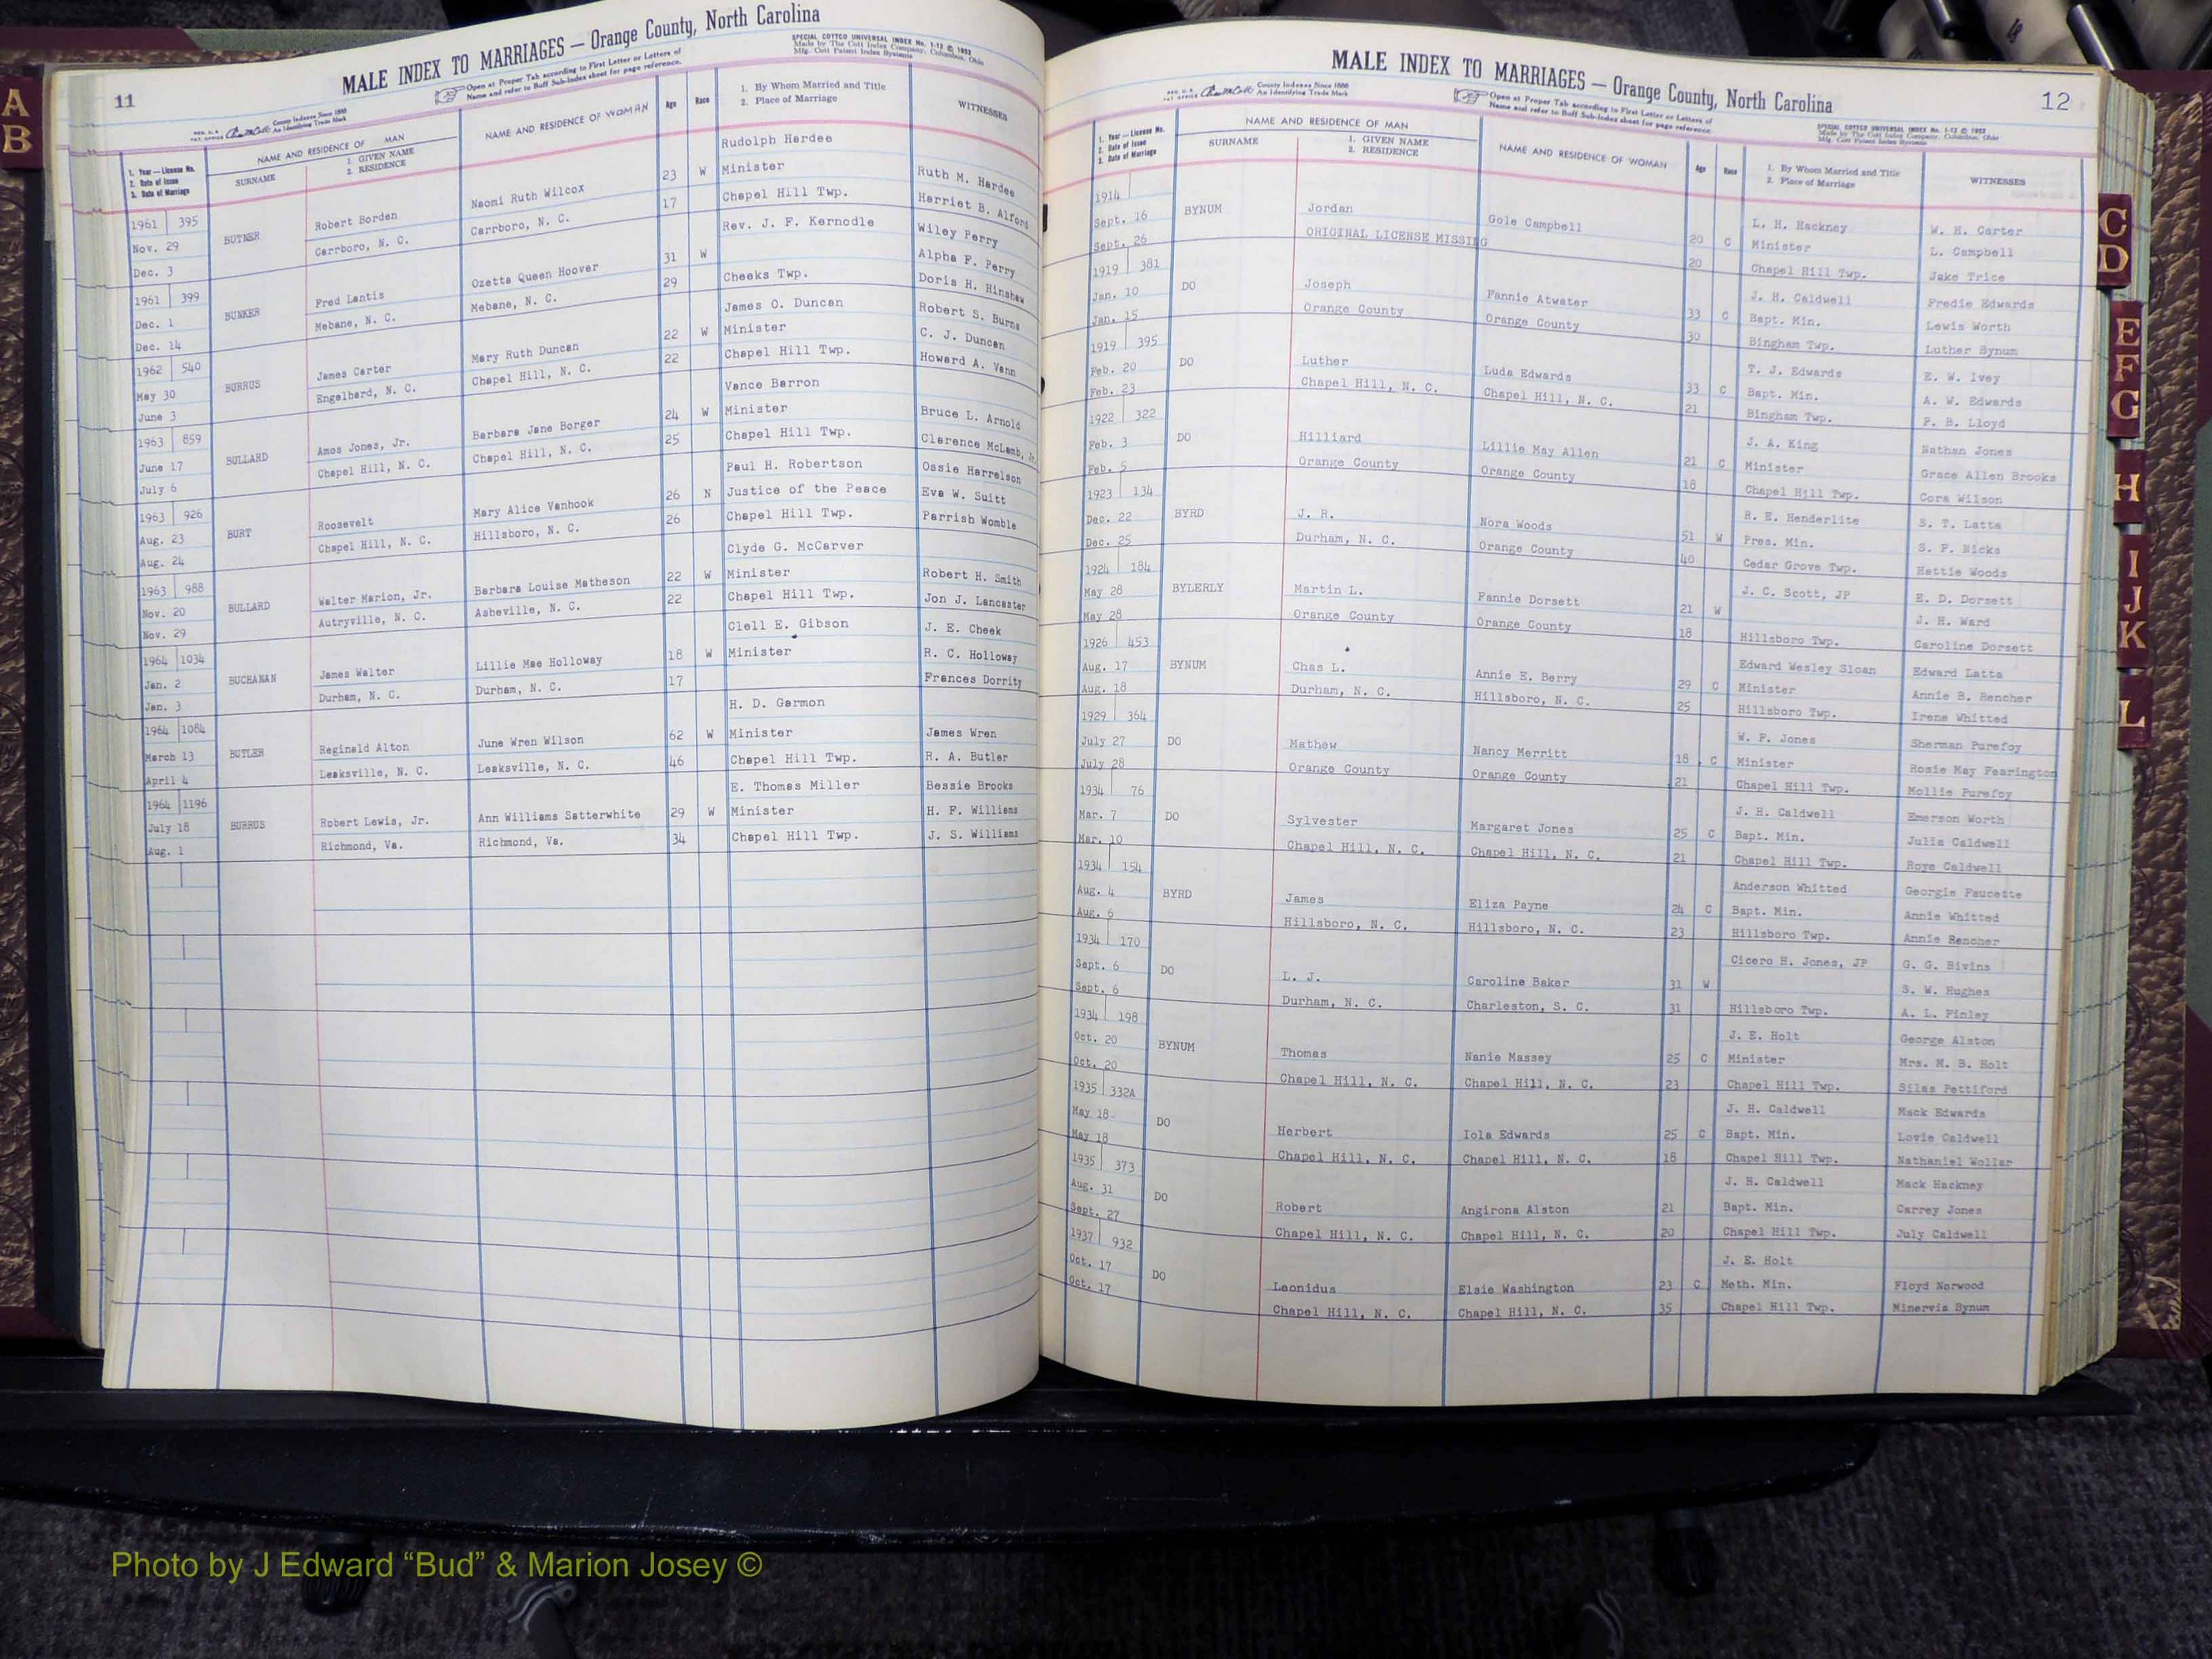 A
B
11
MALE INDEX TO MARRIAGES — Orange County, North Carolina
Open at Proper Tab according to First Letter or Letters of
Name and refer to Buff Sub-Index sheet for page reference.
SPECIAL COTTCO UNIVERSAL INDEX No. 1-12 © 1952
Made by The Cott Index Company, Columbus, Ohio
Mfg. Cott Patent Index Systems
County Indexes Since 1888
An Identifying Trade Mark
1. Year — License No.
2. Date of Issue
3. Date of Marriage
NAME AND RESIDENCE OF MAN
SURNAME
1. GIVEN NAME
2. RESIDENCE
NAME AND RESIDENCE OF WOMAN
Age
Race
1. By Whom Married and Title
2. Place of Marriage
WITNESSES
Rudolph Hardee
1961 395 Robert Borden Naomi Ruth Wilcox 23 W Minister Ruth M. Hardee
Nov. 29 BUTNER Carrboro, N. C. Carrboro, N. C. 17 Chapel Hill Twp. Harriet B. Alford
Dec. 3 Rev. J. F. Kernodle Wiley Perry
1961 399 Fred Lantis Ozetta Queen Hoover 31 W Alpha F. Perry
Dec. 1 BUNKER Mebane, N. C. Mebane, N. C. 29 Cheeks Twp. Doris H. Hinshaw
Dec. 14 James O. Duncan Robert S. Burns
1962 540 James Carter Mary Ruth Duncan 22 W Minister C. J. Duncan
May 30 BURRUS Engelhard, N. C. Chapel Hill, N. C. 22 Chapel Hill Twp. Howard A. Venn
June 3 Vance Barron
1963 859 Amos Jones, Jr. Barbara Jane Borger 24 W Minister Bruce L. Arnold
June 17 BULLARD Chapel Hill, N. C. Chapel Hill, N. C. 25 Chapel Hill Twp. Clarence McLamb, Jr.
July 6 Paul H. Robertson Ossie Harrelson
1963 926 Roosevelt Mary Alice Vanhook 26 N Justice of the Peace Eva W. Suitt
Aug. 23 BURT Chapel Hill, N. C. Hillsboro, N. C. 26 Chapel Hill Twp. Parrish Womble
Aug. 24 Clyde G. McCarver
1963 988 Walter Marion, Jr. Barbara Louise Matheson 22 W Minister Robert H. Smith
Nov. 20 BULLARD Autryville, N. C. Asheville, N. C. 22 Chapel Hill Twp. Jon J. Lancaster
Nov. 29 Clell E. Gibson J. E. Cheek
1964 1034 James Walter Lillie Mae Holloway 18 W Minister R. C. Holloway
Jan. 2 BUCHANAN Durham, N. C. Durham, N. C. 17 Frances Dorrity
Jan. 3 H. D. Garmon
1964 1084 Reginald Alton June Wren Wilson 62 W Minister James Wren
March 13 BUTLER Leaksville, N. C. Leaksville, N. C. 46 Chapel Hill Twp. R. A. Butler
April 4 E. Thomas Miller Bessie Brooks
1964 1196 Robert Lewis, Jr. Ann Williams Satterwhite 29 W Minister H. F. Williams
July 18 BURRUS Richmond, Va. Richmond, Va. 34 Chapel Hill Twp. J. S. Williams
Aug. 1
MALE INDEX TO MARRIAGES — Orange County, North Carolina
12
County Indexes Since 1888
An Identifying Trade Mark
Open at Proper Tab according to First Letter or Letters of
Name and refer to Buff Sub-Index sheet for page reference.
SPECIAL COTTCO UNIVERSAL INDEX No. 1-12 © 1952
Made by The Cott Index Company, Columbus, Ohio
Mfg. Cott Patent Index Systems
1. Year — License No.
2. Date of Issue
3. Date of Marriage
NAME AND RESIDENCE OF MAN
SURNAME
1. GIVEN NAME
2. RESIDENCE
NAME AND RESIDENCE OF WOMAN
Age
Race
1. By Whom Married and Title
2. Place of Marriage
WITNESSES
1914 L. H. Hackney W. H. Carter
Sept. 16 BYNUM Jordan Gole Campbell 20 C Minister L. Campbell
Sept. 26 ORIGINAL LICENSE MISSING 20 Chapel Hill Twp. Jake Trice
1919 381 J. H. Caldwell Fredie Edwards
Jan. 10 DO Joseph Fannie Atwater 33 C Bapt. Min. Lewis Worth
Jan. 15 Orange County Orange County 30 Bingham Twp. Luther Bynum
1919 395 T. J. Edwards E. W. Ivey
Feb. 20 DO Luther Luda Edwards 33 C Bapt. Min. A. W. Edwards
Feb. 23 Chapel Hill, N. C. Chapel Hill, N. C. 21 Bingham Twp. P. B. Lloyd
1922 322 J. A. King Nathan Jones
Feb. 3 DO Hilliard Lillie May Allen 21 C Minister Grace Allen Brooks
Feb. 5 Orange County Orange County 18 Chapel Hill Twp. Cora Wilson
1923 134 R. E. Henderlite S. T. Latta
Dec. 22 BYRD J. R. Nora Woods 51 W Pres. Min. S. F. Nicks
Dec. 25 Durham, N. C. Orange County 40 Cedar Grove Twp. Hattie Woods
1924 184 J. C. Scott, JP E. D. Dorsett
May 28 BYLERLY Martin L. Fannie Dorsett 21 W J. H. Ward
May 28 Orange County Orange County 18 Hillsboro Twp. Caroline Dorsett
1926 453 Edward Wesley Sloan Edward Latta
Aug. 17 BYNUM Chas L. Annie E. Berry 29 C Minister Annie B. Rencher
Aug. 18 Durham, N. C. Hillsboro, N. C. 25 Hillsboro Twp. Irene Whitted
1929 364 W. F. Jones Sherman Purefoy
July 27 DO Mathew Nancy Merritt 18 C Minister Rosie May Fearington
July 28 Orange County Orange County 21 Chapel Hill Twp. Mollie Purefoy
1934 76 J. H. Caldwell Emerson Worth
Mar. 7 DO Sylvester Margaret Jones 25 C Bapt. Min. Julia Caldwell
Mar. 10 Chapel Hill, N. C. Chapel Hill, N. C. 21 Chapel Hill Twp. Roye Caldwell
1934 154 Anderson Whitted Georgie Faucette
Aug. 4 BYRD James Eliza Payne 24 C Bapt. Min. Annie Whitted
Aug. 6 Hillsboro, N. C. Hillsboro, N. C. 23 Hillsboro Twp. Annie Rencher
1934 170 Cicero H. Jones, JP G. G. Bivins
Sept. 6 DO L. J. Caroline Baker 31 W S. W. Hughes
Sept. 6 Durham, N. C. Charleston, S. C. 31 Hillsboro Twp. A. L. Finley
1934 198 J. E. Holt George Alston
Oct. 20 BYNUM Thomas Nanie Massey 25 C Minister Mrs. M. B. Holt
Oct. 20 Chapel Hill, N. C. Chapel Hill, N. C. 23 Chapel Hill Twp. Silas Pettiford
1935 332A J. H. Caldwell Mack Edwards
May 18 DO Herbert Iola Edwards 25 C Bapt. Min. Lovie Caldwell
May 18 Chapel Hill, N. C. Chapel Hill, N. C. 18 Chapel Hill Twp. Nathaniel Wollar
1935 373 J. H. Caldwell Mack Hackney
Aug. 31 DO Robert Angirona Alston 21 Bapt. Min. Carrey Jones
Sept. 27 Chapel Hill, N. C. Chapel Hill, N. C. 20 Chapel Hill Twp. July Caldwell
1937 932 J. E. Holt
Oct. 17 DO Leonidus Elsie Washington 23 C Meth. Min. Floyd Norwood
Oct. 17 Chapel Hill, N. C. Chapel Hill, N. C. 35 Chapel Hill Twp. Minervia Bynum
C
D
E
F
G
H
I
J
K
L
Photo by J Edward “Bud” & Marion Josey ©